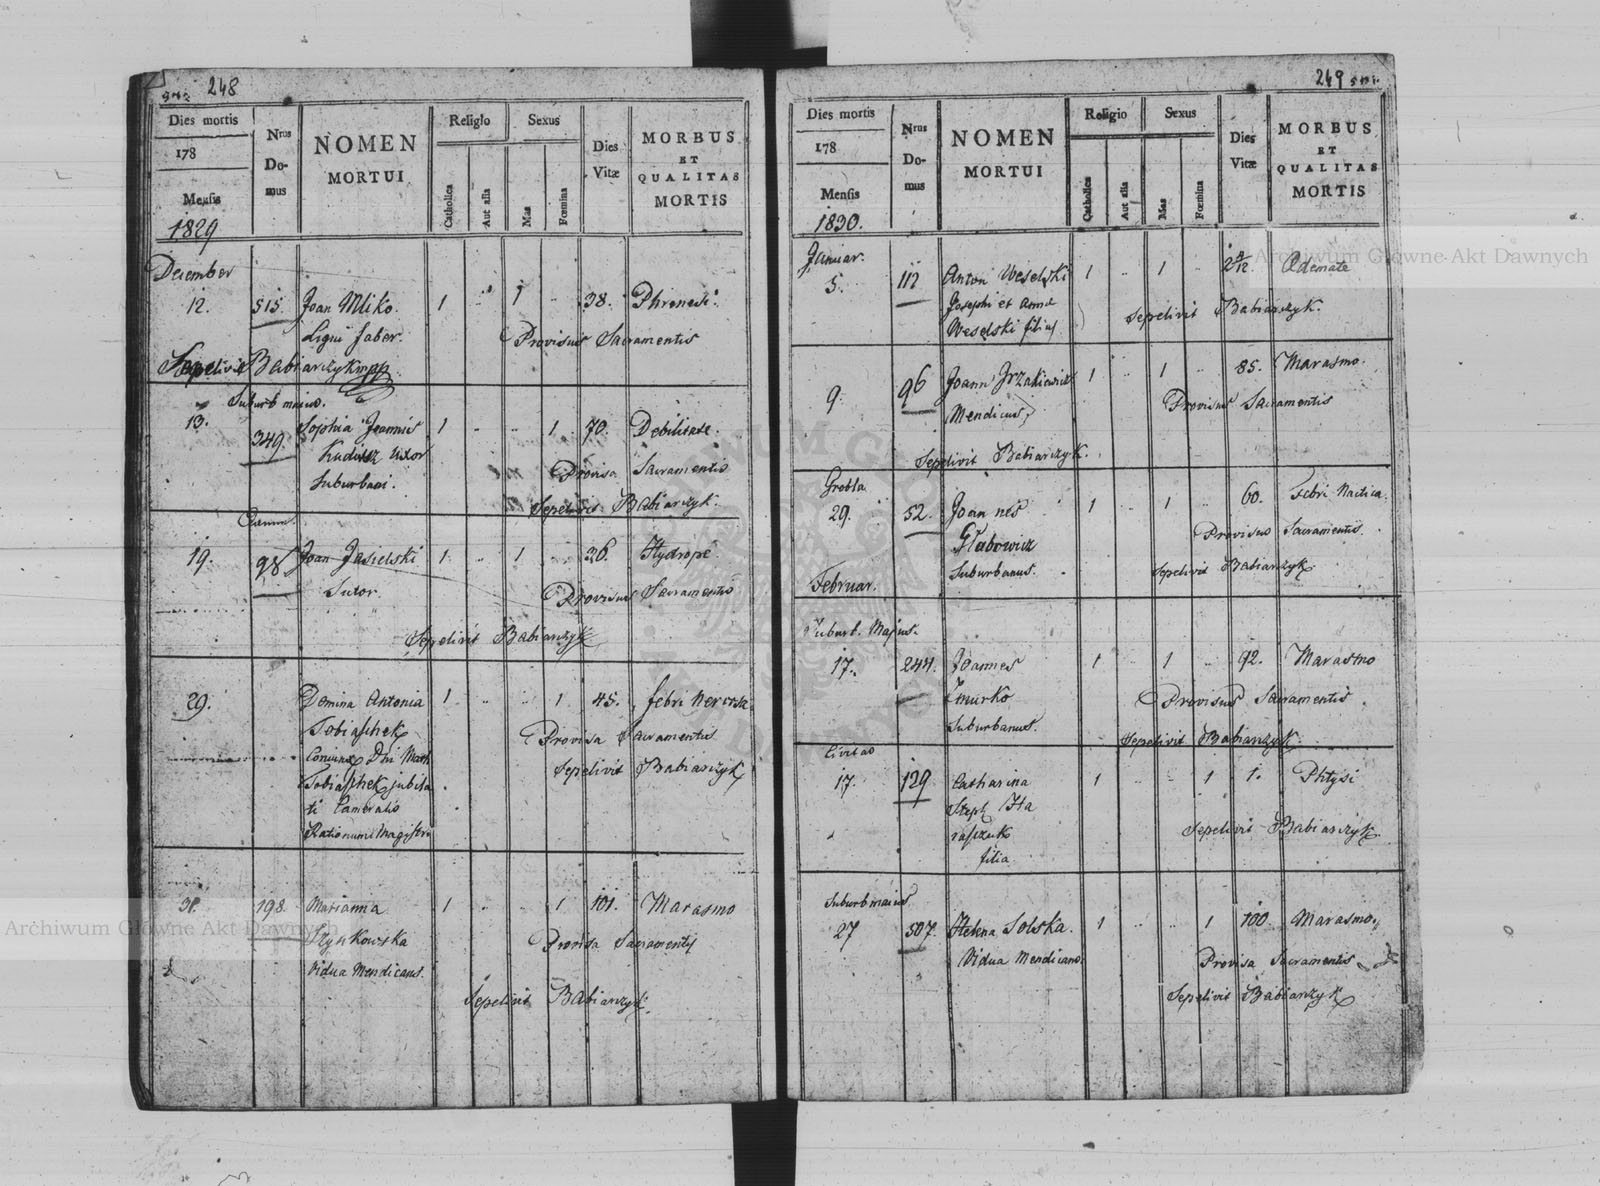 248
Dies mortis
178
Mensis
1829
Nrus
Do-
mus
NOMEN
MORTUI
Religio
Catholica
Aut alia
Sexus
Mas
Fœmina
Dies
Vitæ
MORBUS
ET
QUALITAS
MORTIS
December
12. 515. Joan Mliko. 1 1 38. Phrenesi.
Ligni faber. Provisus Sacramentis
Sepelivit Babiarzyk mpp.
Suburb maius.
13. 349. Sophia Joannis 1 1 70. Debilitate.
Uxor Provisa Sacramentis
Suburbani.
Sepelivit Babiarzyk.
19. 98 Joan Jasielski 1 1 36. Hydrope
Sutor. Provisus Sacramentis
Sepelivit Babiarzyk
29. Domina Antonia 1 1 45. febri Nervosa
Tobiaschek Provisa Sacramentis
Coniunx Dni Math Sepelivit Babiarzyk
Tobiaschek jubila
ti Cameralis
Rationum Magistri
31. 198. Marianna 1 1 101. Marasmo
Szynkowska Provisa Sacramentis
Vidua Mendicans.
Sepelivit Babiarzyk.
249
Dies mortis
178
Mensis
1830.
Nrus
Do-
mus
NOMEN
MORTUI
Religio
Catholica
Aut alia
Sexus
Mas
Fœmina
Dies
Vitæ
MORBUS
ET
QUALITAS
MORTIS
Januar.
5. 112 Anton Weselski 1 1 Ædemate
Josephi et Anna Sepelivit Babiarzyk.
Weselski filius
9. 96 Joann 1 1 85. Marasmo.
Mendicus Provisus Sacramentis
Sepelivit Babiarzyk.
Grobla
29. 52. Joannes 1 1 60. Febri Hectica
Głabowicz Provisus Sacramentis.
Suburbanus. Sepelivit Babiarzyk
Februar.
Suburb. Majus.
17. 244. Joannes 1 1 92. Marasmo
Żmurko Provisus Sacramentis
Suburbanus.
Sepelivit Babiarzyk
Civitas
17. 129 Catharina 1 1 1. Phtysi
Steph
Sepelivit Babiarzyk
filia
Suburb maius.
27 507. Helena Solska. 1 1 100. Marasmo.
Vidua Mendicans Provisa Sacramentis
Sepelivit Babiarzyk
Archiwum Główne Akt Dawnych
Archiwum Główne Akt Dawnych